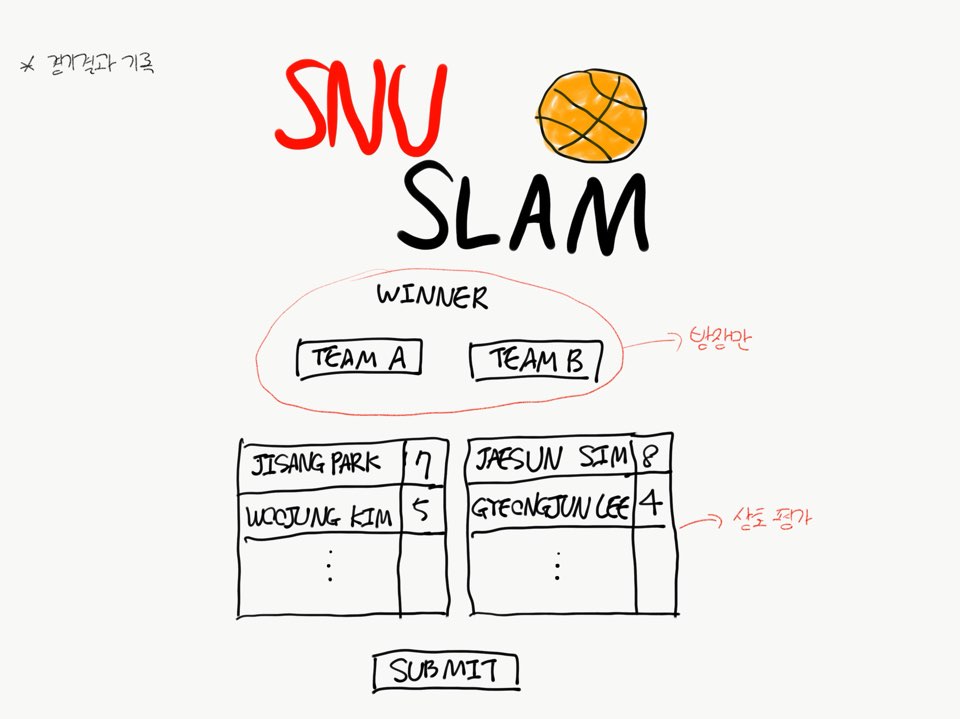 * 경기결과 기록
SNU
SLAM
WINNER
TEAM A
TEAM B
방장만
JISANG PARK 7
WOOJUNG KIM 5
⋮
JAESUN SIM 8
GYEONGJUN LEE 4
⋮
상호 평가
SUBMIT